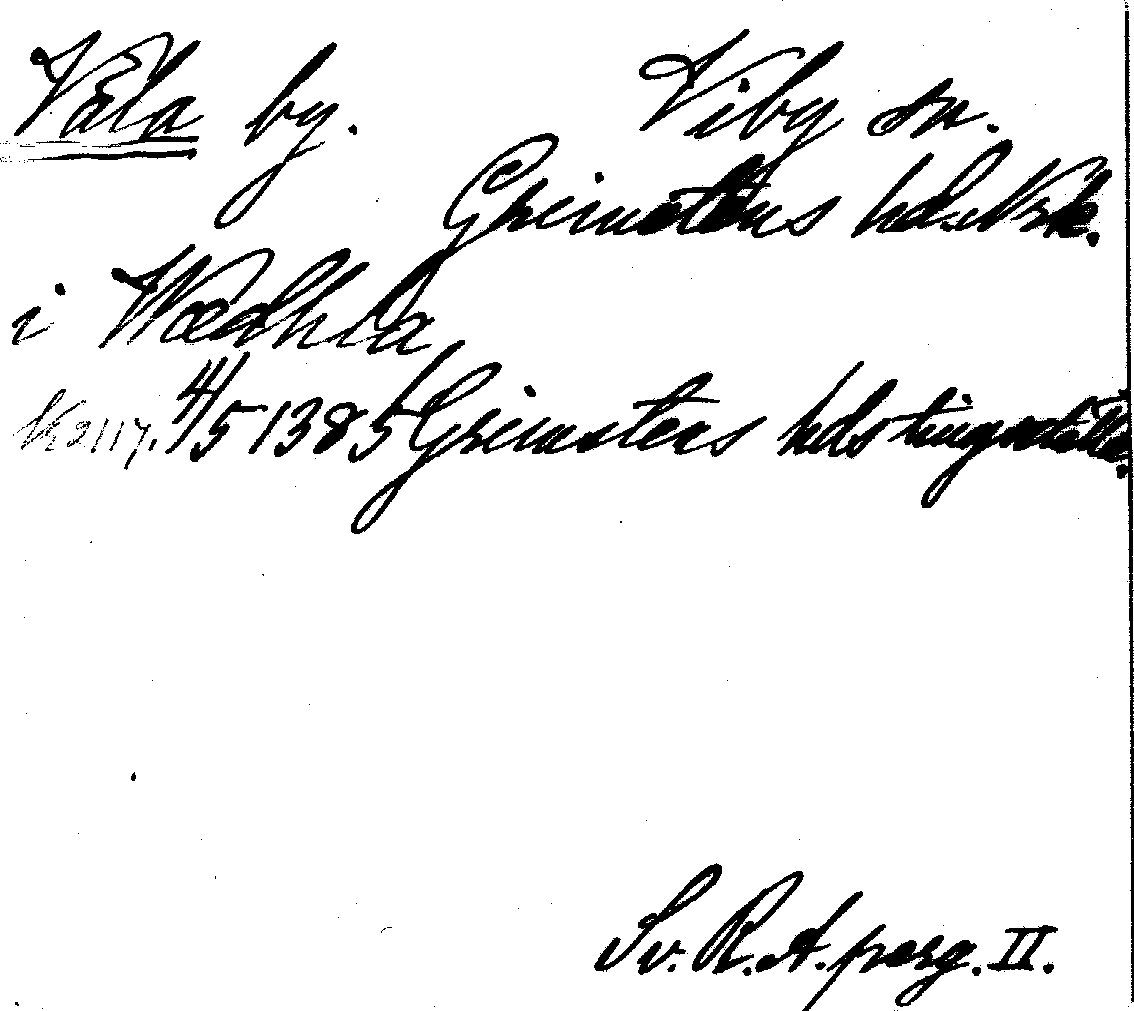 Våla by. Viby sn.
Grimstens hd. Nrk.
i Wædhla
K 2117. 4/5 1385 Grimstens hds tingställe.
Sv. R.A. perg. II.